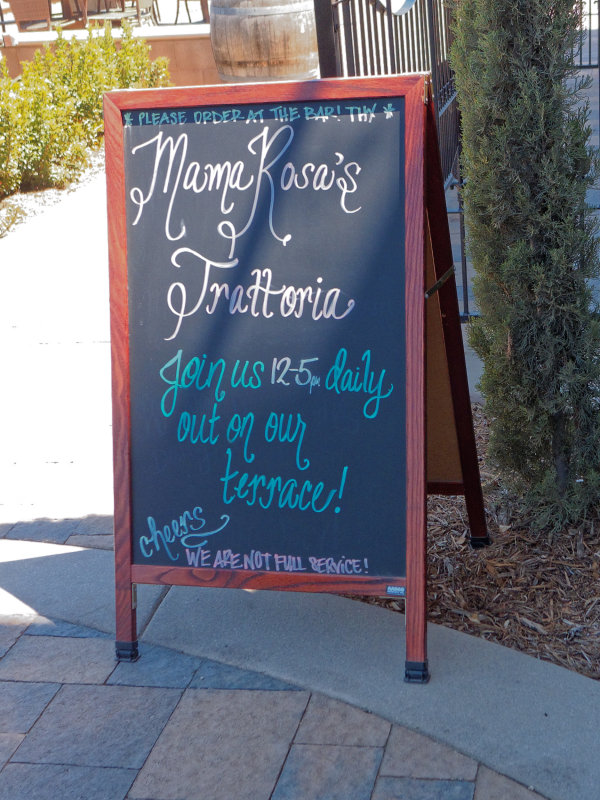 PLEASE ORDER AT THE BAR! THX
Mama Rosa's
Trattoria
Join us 12-5pm daily
out on our
terrace!
cheers
WE ARE NOT FULL SERVICE!